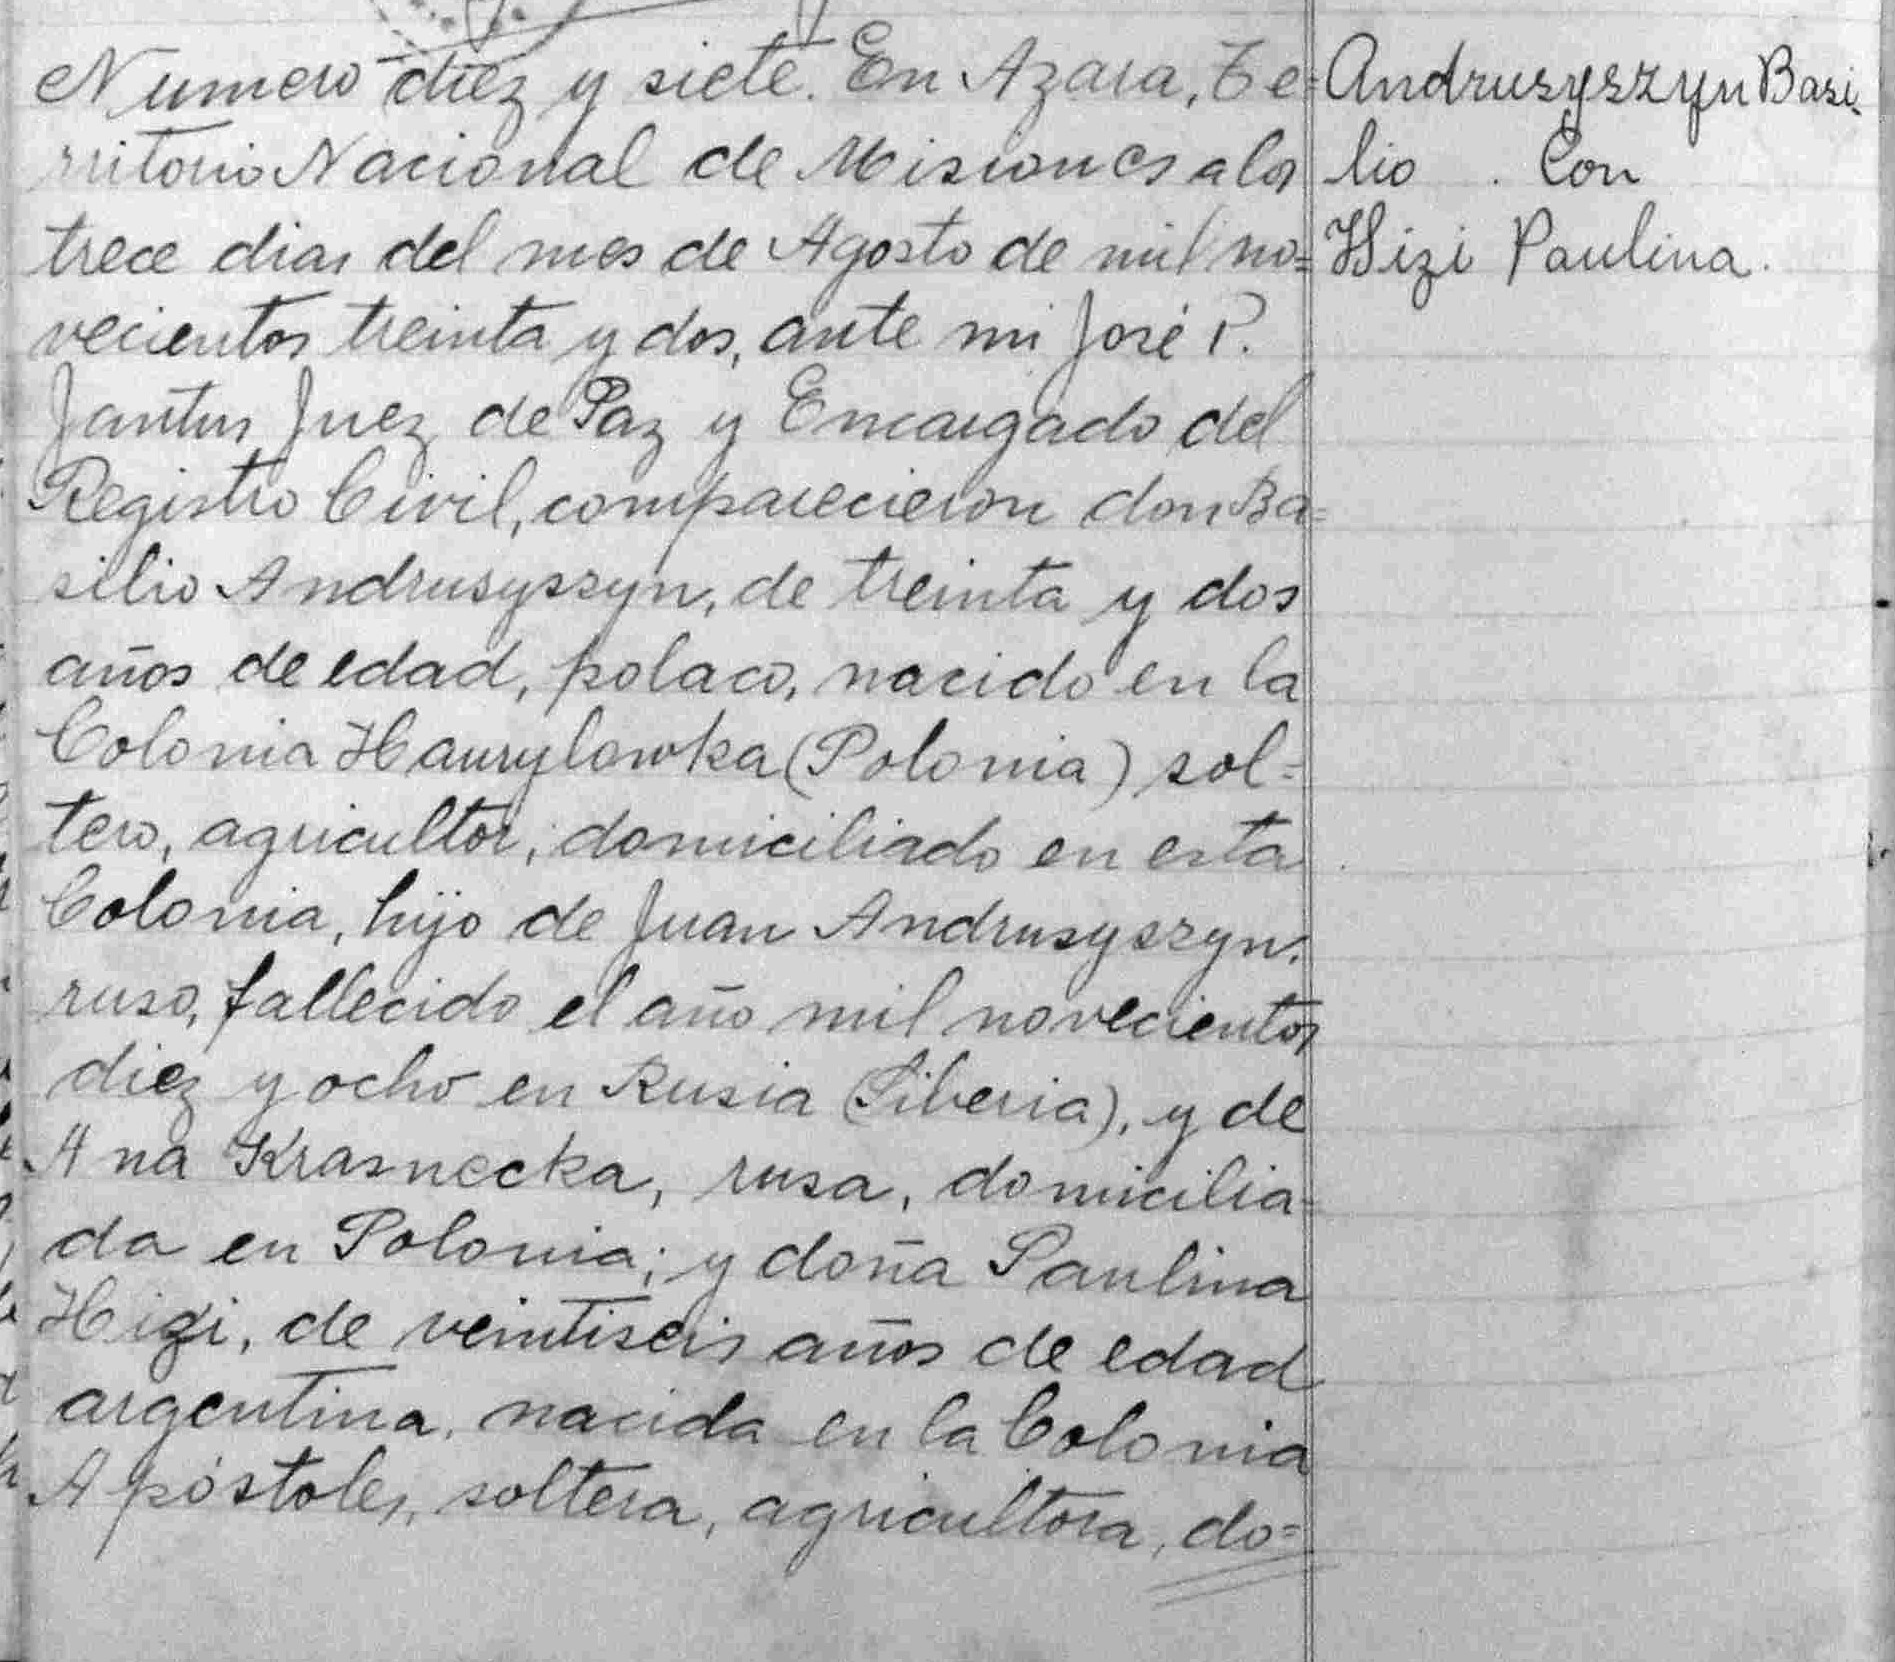 Numero diez y siete. En Azara, Te=
rritorio Nacional de Misiones a los
trece dias del mes de Agosto de mil no=
vecientos treinta y dos, ante mi José P.
Jantus Juez de Paz y Encargado del
Registro Civil, comparecieron don Ba=
silio Andrusyszyn, de treinta y dos
años de edad, polaco, nacido en la
Colonia Haurylowka (Polonia) sol=
tero, agricultor, domiciliado en esta
Colonia, hijo de Juan Andrusyszyn,
ruso, fallecido el año mil novecientos
diez y ocho en Rusia (Siberia), y de
Ana Krasnecka, rusa, domicilia=
da en Polonia; y doña Paulina
Hizi, de veintiseis años de edad
argentina, nacida en la Colonia
Apóstoles, soltera, agricultora, do=
Andrusyszyn Basi-
lio . Con
Hizi Paulina.